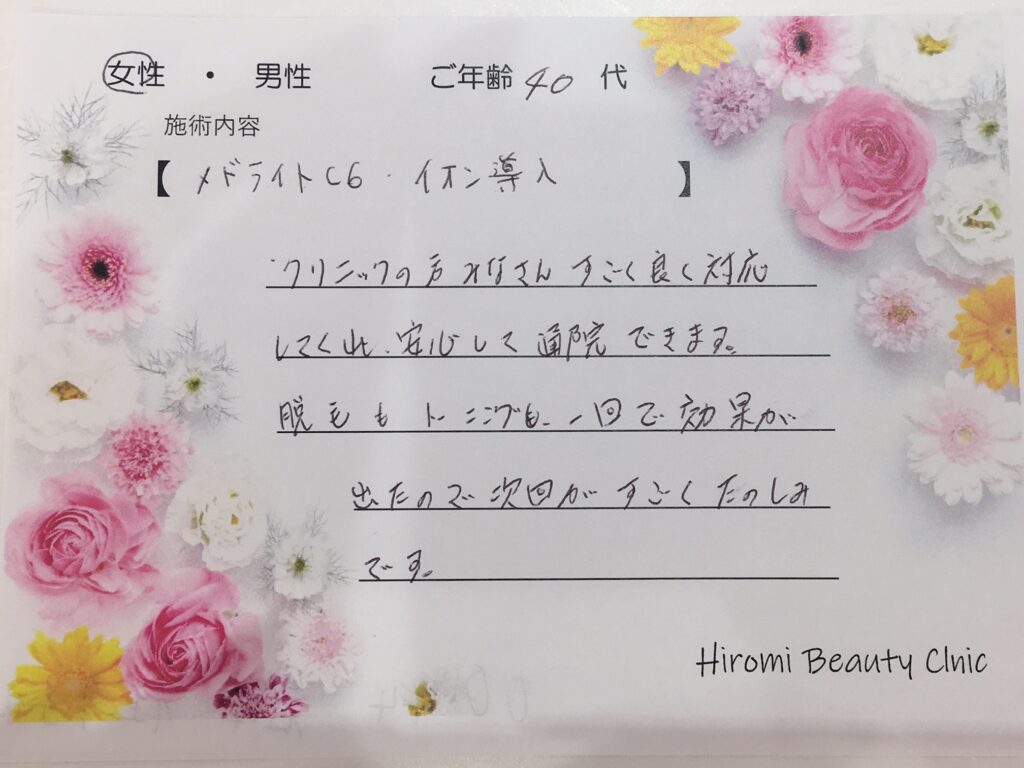 女性 ・ 男性 ご年齢 40 代
施術内容
【 メドライトC6・イオン導入 】
クリニックの方みなさんすごく良く対応
してくれ、安心して通院できます。
脱毛もトーニングも、一回で効果が
出たので次回がすごくたのしみ
です。
Hiromi Beauty Clnic